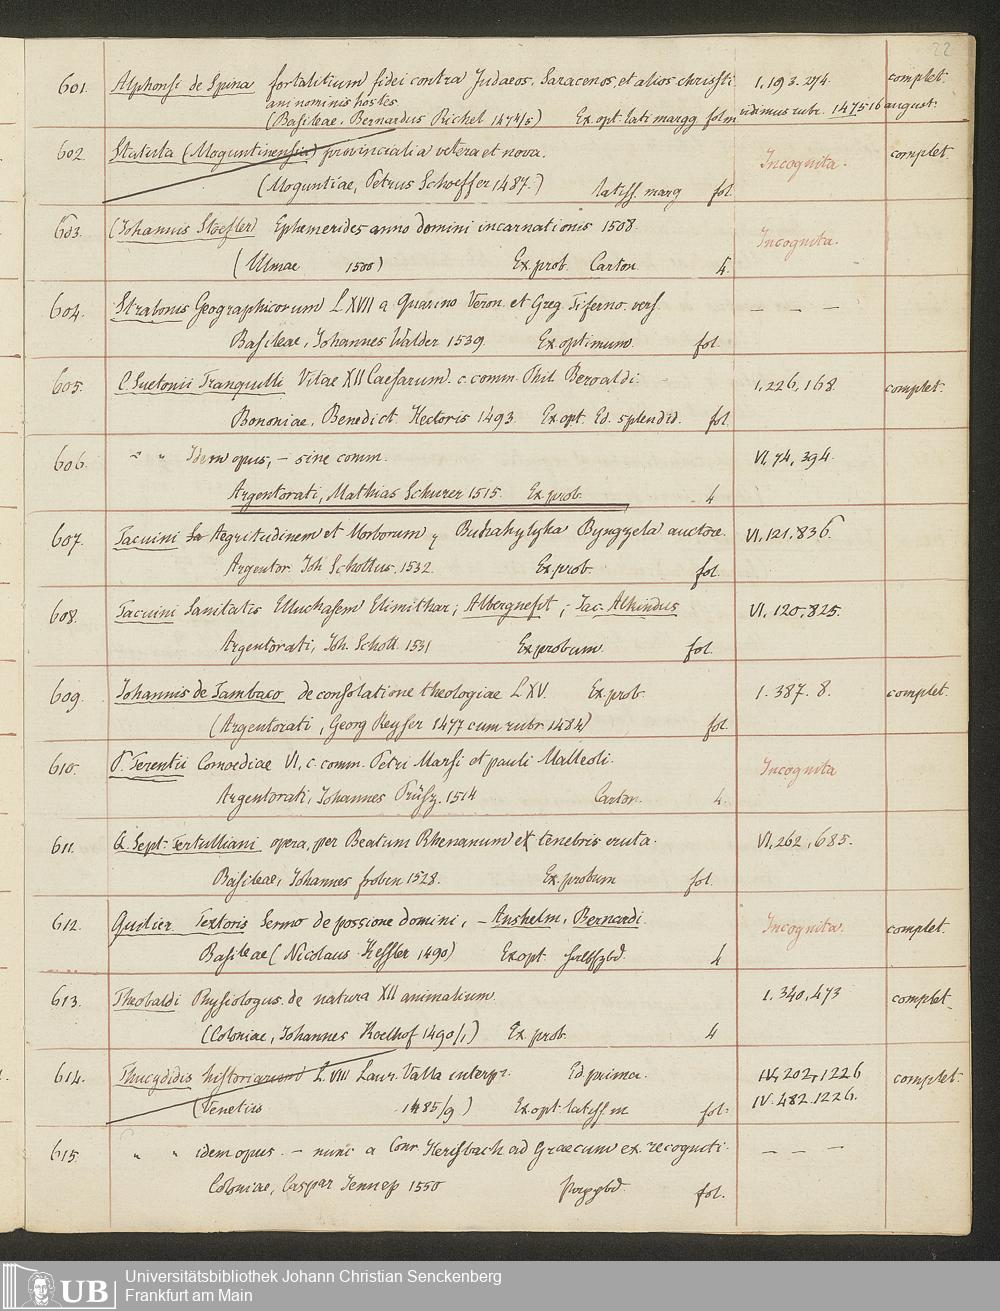 22
601. Alphonsi de Spina fortalitium fidei contra Judaeos, Saracenos, et alios christi 1, 193. 274. complet.
ani nominis hostes
(Basileae, Bernardus Richel 1474/5) Ex. opt. lati margg fol m vidimus rubr. 1475 16 august.
602. Statuta (Moguntinensia) provincialia vetera et nova. Incognita. complet.
(Moguntiae, Petrus Schoeffer 1487.) latiss. marg fol.
603. (Johannis Stoefler) Ephemerides anno domini incarnationis 1508. Incognita.
(Ulmae 1500) Ex. prob. Carton. 4.
604. Strabonis Geographicorum L XVII a Guarino Veron. et Greg. Tiferno. vers — — —
Basileae, Johannes Walder 1539. Ex. optimum. fol.
605. C Suetonii Tranquilli Vitae XII Caesarum. c. comm. Phil. Beroaldi. 1, 226, 168. complet.
Bononiae, Benedict. Hectoris 1493. Ex. opt. Ed. splendid. fol.
606. " " Idem opus, — sine comm. VI, 74, 394.
Argentorati, Mathias Schurer 1515. Ex. prob. 4
607. Tacuini Aegritudinem et Morborum, Buhahylyha Byngezla auctore. VI, 121, 836.
Argentor. Joh Schottus. 1532. Ex. prob. fol.
608. Tacuini Sanitatis Elluchasem Elimithar; Albergnefit; Jac. Alkindus VI, 120, 825.
Argentorati, Joh. Schott. 1531 Ex probum. fol.
609. Johannis de Tambaco de consolatione theologiae L XV. Ex. prob. 1. 387. 8. complet.
(Argentorati, Georg Reyser 1477 cum rubr. 1484) fol.
610. P. Terentii Comoediae VI, c. comm. Petri Marsi et pauli Malleoli. Incognita
Argentorati, Johannes Prüsz. 1514 Carton. 4.
611. Q. Sept. Tertulliani opera, per Beatum Rhenanum ex tenebris eruta. VI, 262, 685.
Basileae, Johannes froben 1528. Ex. probum fol.
612. Guilier Textoris Sermo de passione domini, — Anshelm, Bernardi. Incognita. complet.
Basileae (Nicolaus Kessler 1490) Ex opt. halbfzbd. 4
613. Theobaldi Physiologus de natura XII animalium. 1. 340, 473 complet.
(Coloniae, Johannes Koelhof 1490/1) Ex. prob. 4
614. Thucydidis historiarum L. VIII Laur. Valla interpr. Ed. prima. IV, 202, 1226 complet.
(Venetiis 1485/9.) Ex opt. latiss. m fol. IV. 482. 1226.
615. " " idem opus. — nunc a Conr. Heresbach ad Graecum ex. recogniti. — — —
Coloniae, Caspar Jennep 1550 prgzbd. fol.
UB Universitätsbibliothek Johann Christian Senckenberg
Frankfurt am Main